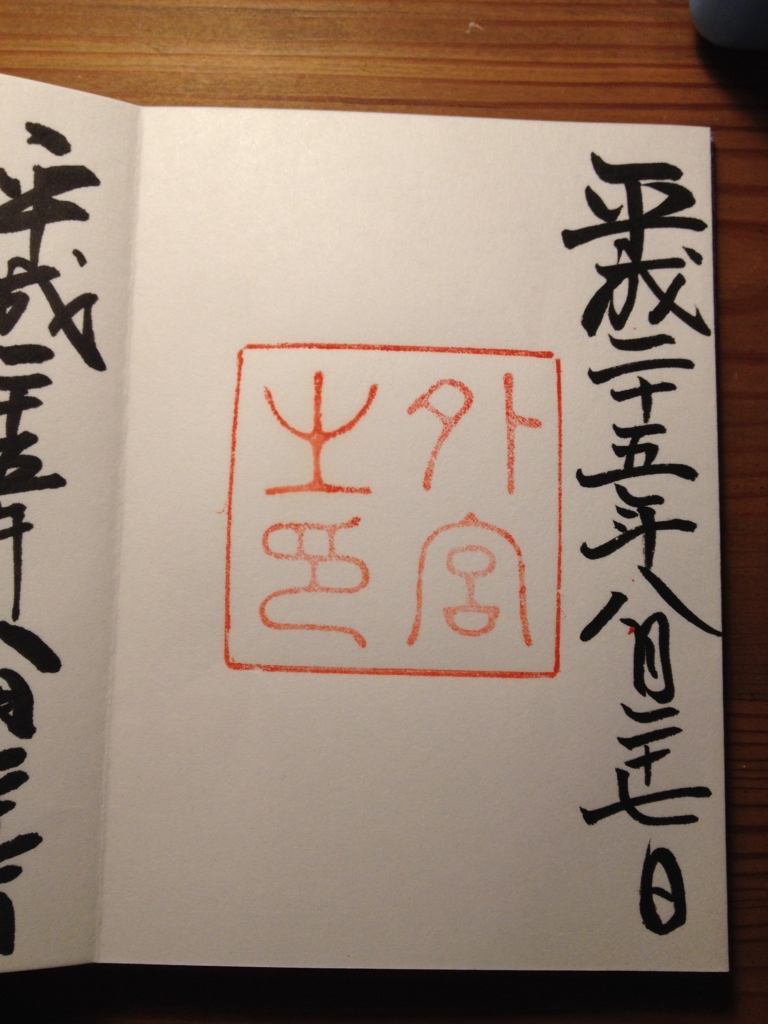 平成二十五年八月二十七日
外宮
之印
平成二十五年八月